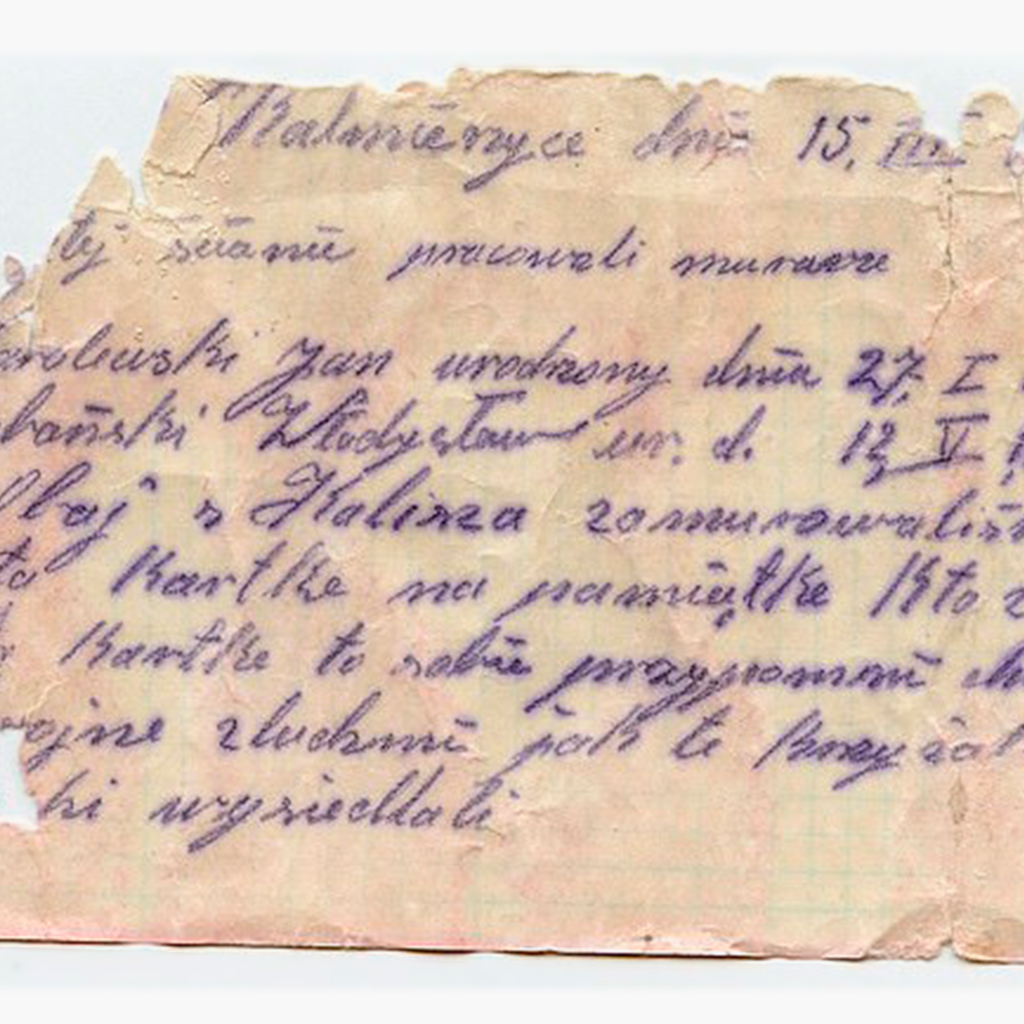 Kalmierzyce dnia 15. III
tej ścianie pracowali murarze
Jan urodzony dnia 27. I
Władysław ur. d. 12 V
Obaj z Kalisza zamurowaliśm
Kartke na pamiątke Kto
Kartke to sobie przypomni
zludzmi jak te Krzyżak
ki wysiedlali